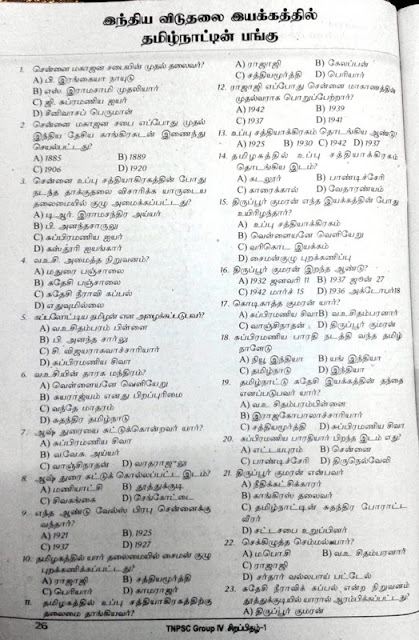 இந்திய விடுதலை இயக்கத்தில்
தமிழ்நாட்டின் பங்கு
1. சென்னை மகாஜன சபையின் முதல் தலைவர்?
A) பி. இரங்கையா நாயுடு
B) எஸ். இராமசாமி முதலியார்
C) ஜி. சுப்ரமணிய ஐயர்
D) சீனிவாசப் பெருமான்
2. சென்னை மகாஜன சபை எப்போது முதல்
இந்திய தேசிய காங்கிரசுடன் இணைந்து
செயல்பட்டது?
A) 1885 B) 1889
C) 1906 D) 1920
3. சென்னை உப்பு சத்தியாகிரகத்தின் போது
நடந்த தாக்குதலை விசாரிக்க யாருடைய
தலைமையில் குழு அமைக்கப்பட்டது?
A) டி.ஆர். இராமசந்திர அய்யர்
B) பி. அனந்தசாருலு
C) சுப்பிரமணிய ஐயர்
D) கஸ்தூரி ஐயங்கார்
4. வ.உ.சி. அமைத்த நிறுவனம்?
A) மதுரை பஞ்சாலை
B) சுதேசி பஞ்சாலை
C) சுதேசி நீராவி கப்பல்
D) எதுவுமில்லை
5. கப்பலோட்டிய தமிழன் என அழைக்கப்படுபவர்?
A) வ.உ.சிதம்பரம் பிள்ளை
B) பி. அனந்த சார்லு
C) சி. விஜயராகவாச்சாரியார்
D) சுப்பிரமணிய சிவா
6. வ.உ.சியின் தாரக மந்திரம்?
A) வெள்ளையனே வெளியேறு
B) சுயராஜ்யம் எனது பிறப்புரிமை
C) வந்தே மாதரம்
D) சுதந்திர தமிழ்நாடு
7. ஆஷ் துரையை சுட்டுக்கொன்றவர் யார்?
A) சுப்பிரமணிய சிவா
B) வ.வே.சு. அய்யர்
C) வாஞ்சிநாதன் D) வரதராஜுலு
8. ஆஷ் துரை சுட்டுக் கொல்லப்பட்ட இடம்?
A) மணியாட்சி B) தூத்துக்குடி
C) சிவகங்கை D) செங்கோட்டை
9. எந்த ஆண்டு வேல்ஸ் பிரபு சென்னைக்கு
வந்தார்?
A) 1921 B) 1925
C) 1937 D) 1927
10. தமிழகத்தில் யார் தலைமையில் சைமன் குழு
புறக்கணிக்கப்பட்டது?
A) ராஜாஜி B) சத்தியமூர்த்தி
C) பெரியார் D) காமராஜர்
11. தமிழகத்தில் உப்பு சத்தியாகிரகத்திற்கு
தலைமை தாங்கியவர்?
A) ராஜாஜி B) கேலப்பன்
C) சத்தியமூர்த்தி D) பெரியார்
12. ராஜாஜி எப்போது சென்னை மாகாணத்தின்
முதல்வராக பொறுப்பேற்றார்?
A) 1942 B) 1939
C) 1937 D) 1941
13. உப்பு சத்தியாகிரகம் தொடங்கிய ஆண்டு?
A) 1925 B) 1930 C) 1942 D) 1937
14. தமிழகத்தில் உப்பு சத்தியாகிரகம்
தொடங்கிய இடம்?
A) கடலூர் B) பாண்டிச்சேரி
C) காரைக்கால் D) வேதாரண்யம்
15. திருப்பூர் குமரன் எந்த இயக்கத்தின் போது
உயிரிழந்தார்?
A) உப்பு சத்தியாகிரகம்
B) வெள்ளையனே வெளியேறு
C) வரிகொடா இயக்கம்
D) சைமன்குழு புறக்கணிப்பு
16. திருப்பூர் குமரன் இறந்த ஆண்டு?
A) 1932 ஜனவரி 11 B) 1937 ஜூன் 27
C) 1942 மார்ச் 15 D) 1936 அக்டோபர்18
17. கொடிகாத்த குமரன் யார்?
A) சுப்பிரமணிய சிவா B) வ.உ.சிதம்பரனார்
C) வாஞ்சிநாதன் D) திருப்பூர் குமரன்
18. சுப்பிரமணிய பாரதி நடத்தி வந்த தமிழ்
நாளேடு
A) நியூ இந்தியா B) யங் இந்தியா
C) தமிழ்நாடு D) இந்தியா
19. தமிழ்நாட்டு சுதேசி இயக்கத்தின் தந்தை
எனப்படுபவர் யார்?
A) வ.உ.சிதம்பரம்பிள்ளை
B) இராஜகோபாலாச்சாரியார்
C) சத்தியமூர்த்தி D) சுப்பிரமணிய சிவா
20. சுப்பிரமணிய பாரதியார் பிறந்த இடம் எது?
A) எட்டயபுரம் B) சென்னை
C) பாண்டிச்சேரி D) திருநெல்வேலி
21. திருப்பூர் குமரன் என்பவர்
A) நீதிக்கட்சிக்காரர்
B) காங்கிரஸ் தலைவர்
C) தமிழ்நாட்டின் சுதந்திர போராட்ட
வீரர்
D) சட்டசபை உறுப்பினர்
22. செக்கிழுத்த செம்மல் யார்?
A) ம.பொ.சி B) வ.உ.சிதம்பரனார்
C) ராஜாஜி
D) சர்தார் வல்லபாய் பட்டேல்
23. சுதேசி நீராவிக் கப்பல் என்ற நிறுவனம்
தூத்துக்குடியில் யாரால் ஆரம்பிக்கப்பட்டது?
A) திருப்பூர் குமரன்
26 TNPSC Group IV சிறப்பிதழ்-1